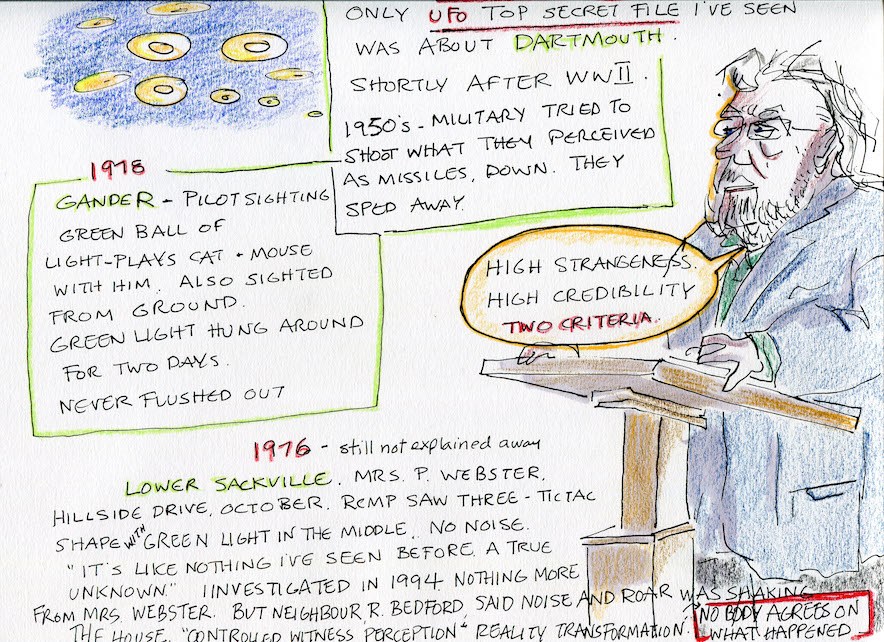 ONLY UFO TOP SECRET FILE I'VE SEEN
WAS ABOUT DARTMOUTH.
SHORTLY AFTER WWII.
1950's - MILITARY TRIED TO
SHOOT WHAT THEY PERCEIVED
AS MISSILES, DOWN. THEY
SPED AWAY.
1978
GANDER - PILOT SIGHTING
GREEN BALL OF
LIGHT-PLAYS CAT + MOUSE
WITH HIM. ALSO SIGHTED
FROM GROUND.
GREEN LIGHT HUNG AROUND
FOR TWO DAYS.
NEVER FLUSHED OUT
HIGH STRANGENESS.
HIGH CREDIBILITY
TWO CRITERIA.
1976 - still not explained away
LOWER SACKVILLE. MRS. P. WEBSTER,
HILLSIDE DRIVE, OCTOBER. RCMP SAW THREE - TICTAC
SHAPE WITH GREEN LIGHT IN THE MIDDLE. NO NOISE.
"IT'S LIKE NOTHING I'VE SEEN BEFORE. A TRUE
UNKNOWN." I INVESTIGATED IN 1994. NOTHING MORE
FROM MRS. WEBSTER. BUT NEIGHBOUR, R. BEDFORD, SAID NOISE AND ROAR WAS SHAKING
THE HOUSE. "CONTROLLED WITNESS PERCEPTION" REALITY TRANSFORMATION.
NOBODY AGREES ON
WHAT HAPPENED